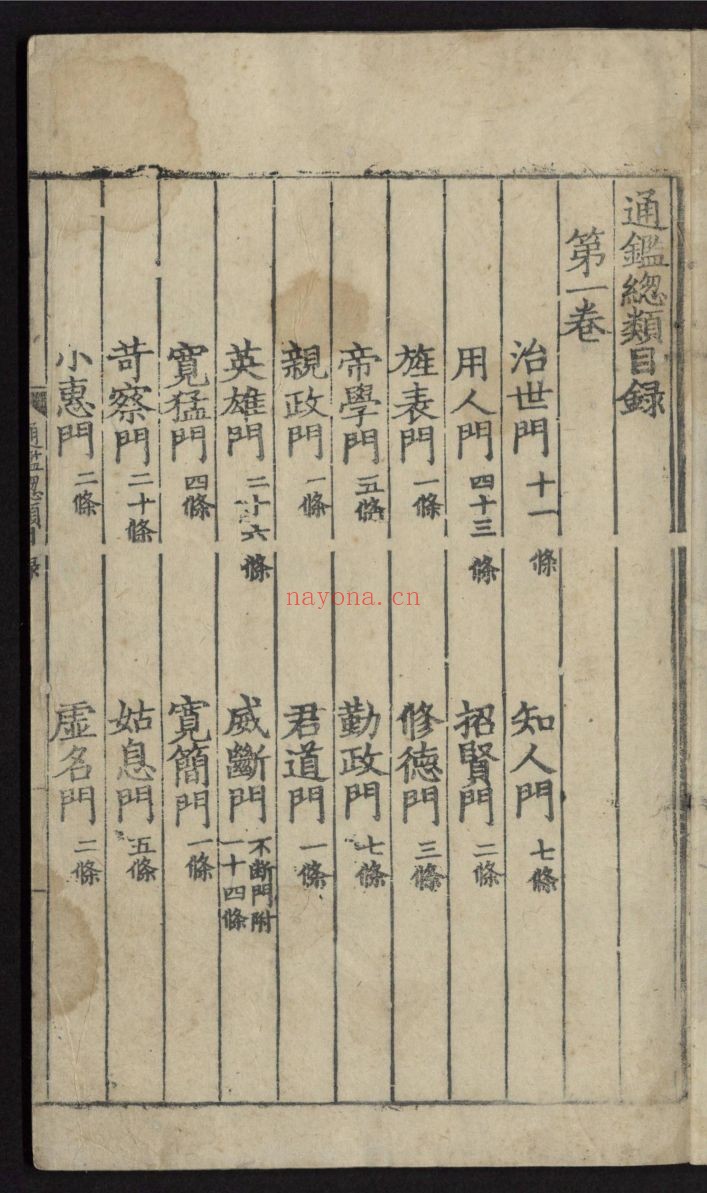 通鑑緫類目録
第一卷
治世門 十一條 知人門 七條
用人門 四十三條 招賢門 二條
旌表門 一條 修德門 三條
帝學門 五條 勤政門 七條
親政門 一條 君道門 一條
英雄門 二十六條 威斷門 不斷門附 一十四條
寬猛門 四條 寬簡門 一條
苛察門 二十條 姑息門 五條
小惠門 二條 虛名門 二條
通鑑緫類目録
nayona.cn